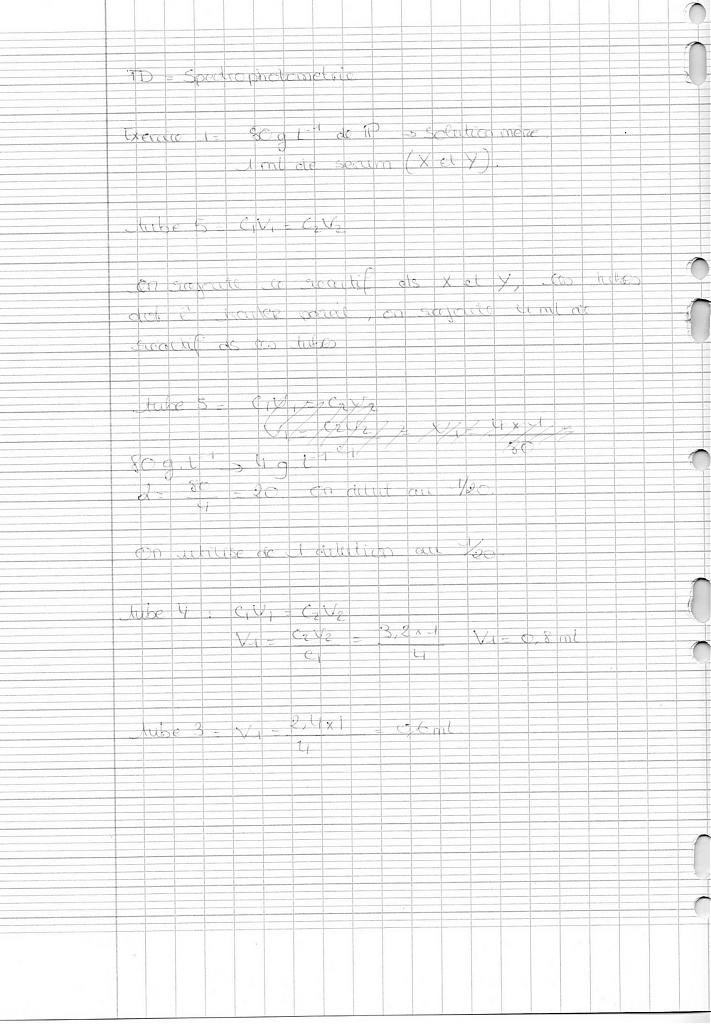 TD = Spectrophotometrie
Exercice 1 = 80 g L⁻¹ de TP → Solution mere.
1 ml de serum (X et Y).
tube 5 = C₁V₁ = C₂V₂
on rajoute reactif ds X et Y, tubes
, on rajoute 4 ml
reactif ds tubes
tube 5 = C₁V₁ = C₂V₂
V₁ = C₂V₂ / C₁ = V₁ = 4 x 1 / 80 =
80 g.L⁻¹ → 4 g L⁻¹
d = 80 / 4 = 20 on dilut au 1/20.
On utilise de 1 dilution au 1/20
tube 4 : C₁V₁ = C₂V₂
V₁ = C₂V₂ / C₁ = 3,2 x 1 / 4 V₁ = 0,8 ml
tube 3 = V₁ = 2,4 x 1 / 4 = 0,6 ml